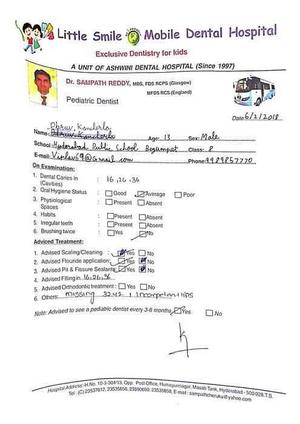 Little Smile Mobile Dental Hospital
Exclusive Dentistry for kids
A UNIT OF ASHWINI DENTAL HOSPITAL (Since 1997)
Dr. SAMPATH REDDY, MDS, FDS RCPS (Glasgow)
MFDS RCS (England)
Pediatric Dentist
Date: 6/2/2018
Name: Age: 13 Sex: Male
School: Hyderabad Public School Begumpet Class: 8
E-mail: Phone:
On Examination:
1. Dental Caries in (Cavities) : 16, 26, 36
2. Oral Hygiene Status : Good Average Poor
3. Physiological Spaces : Present Absent
4. Habits : Present Absent
5. Irregular teeth : Present Absent
6. Brushing twice : Yes No
Adviced Treatment:
1. Advised Scaling/Cleaning : Yes No
2. Advised Flouride application : Yes No
3. Advised Pit & Fissure Sealants : Yes No
4. Advised Filling in 16, 26, 36
5. Advised Orthodontic treatment : Yes No
6. Others: missing
Note: Advised to see a pediatric dentist every 3-6 months Yes No
Hospital Address: H.No. 10-3-304/13, Opp. Post Office, Humayunnagar, Masab Tank, Hyderabad - 500 028. T.S.